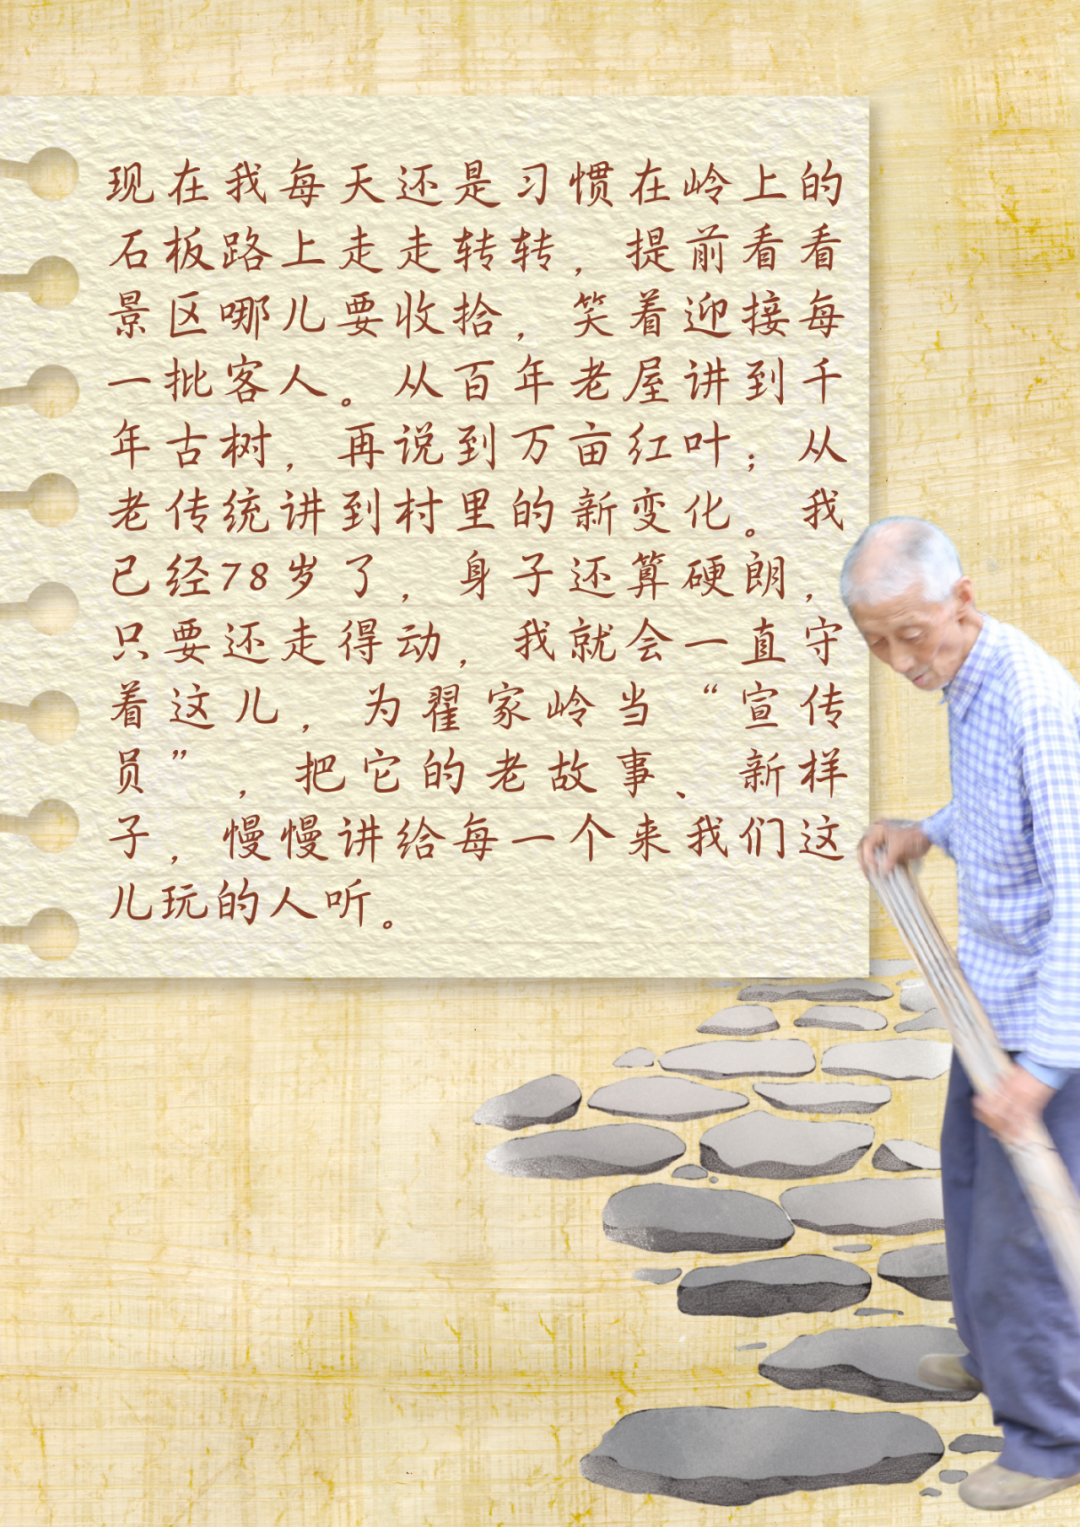 现在我每天还是习惯在岭上的
石板路上走走转转，提前看看
景区哪儿要收拾，笑着迎接每
一批客人。从百年老屋讲到千
年古树，再说到万亩红叶；从
老传统讲到村里的新变化。我
已经78岁了，身子还算硬朗，
只要还走得动，我就会一直守
着这儿，为翟家岭当“宣传
员”，把它的老故事、新样
子，慢慢讲给每一个来我们这
儿玩的人听。